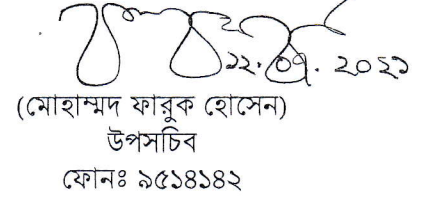 ১২.০৭.২০২১
(মোহাম্মদ ফারুক হোসেন)
উপসচিব
ফোনঃ ৯৫১৪১৪২